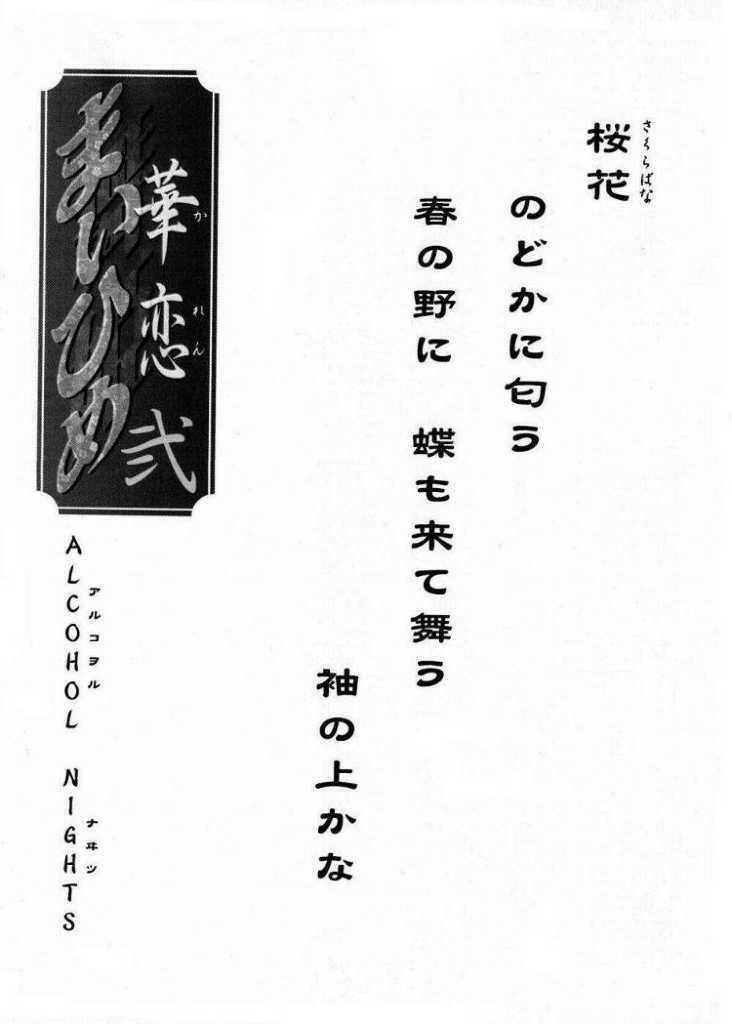 桜花
さくらばな
のどかに匂う
春の野に　蝶も来て舞う
袖の上かな
まいひめ
華恋 弐
かれん
ALCOHOL NIGHTS
アルコヲル　ナヰツ